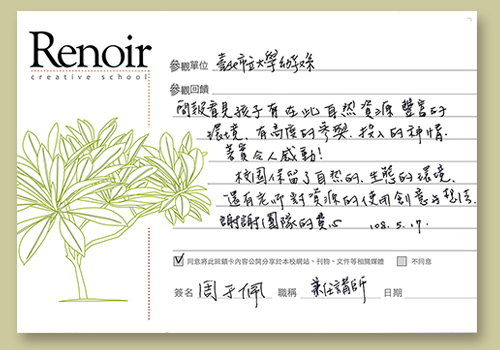 Renoir
creative school
參觀單位 臺北市立大學幼教系
參觀回饋
看見孩子有在此自然資源豐富的
環境,有高度的參與、投入的神情
著實令人感動!
校園保留了自然的、生態的環境,
還有老師對資源的使用創意與想法
謝謝團隊的費心 108.5.17.
同意將此回饋卡內容公開分享於本校網站、刊物、文件等相關媒體 不同意
簽名 周于佩 職稱 兼任講師 日期